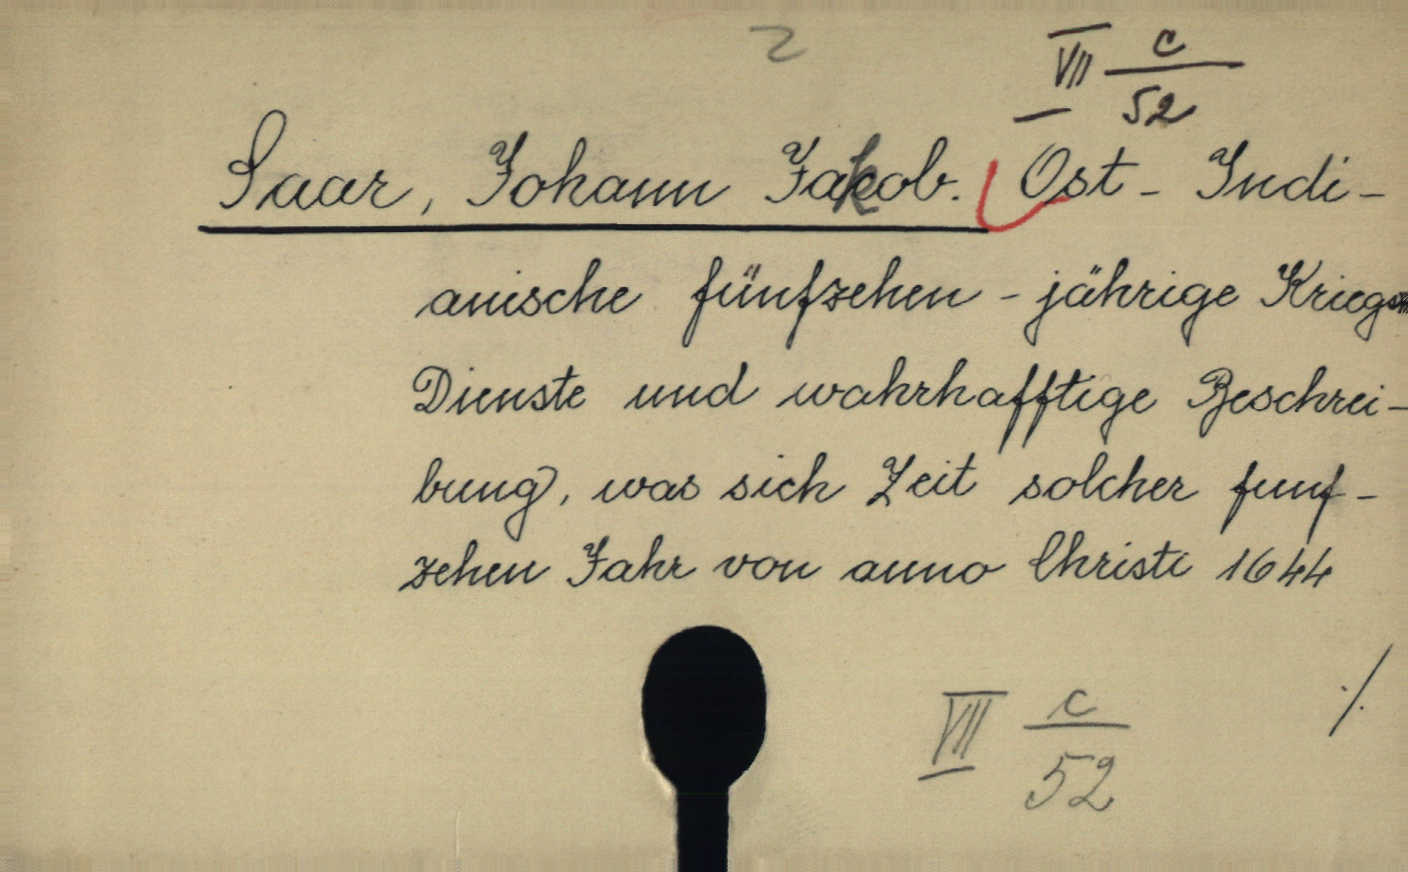 2
VII c/52
Saar, Johann Jakob. Ost-Indi-
anische fünfzehen-jährige Kriegs-
Dienste und wahrhafftige Beschrei-
bung, was sich Zeit solcher funf-
zehen Jahr von anno Christi 1644
./.
VII c/52